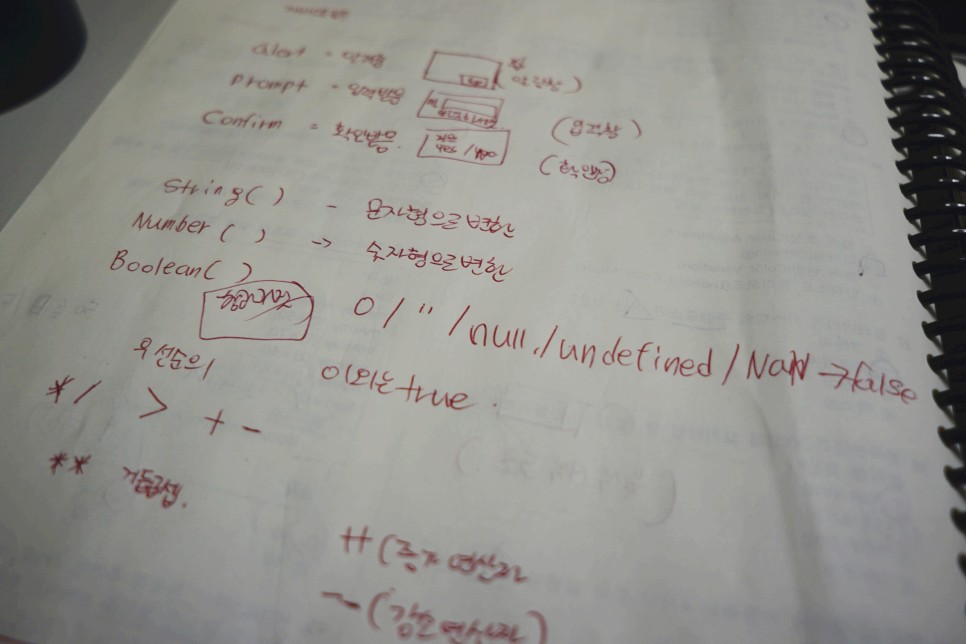 alert = 알려줌 (알림창)
Prompt = 입력받음 (입력창)
Confirm = 확인받음. yes / no (확인창)
String( ) - 문자형으로 변환
Number ( ) -> 숫자형으로 변환
Boolean( )
0 / '' / null / undefined / NaN -> false
우선순위 이외는 true.
* / > + -
** 거듭제곱.
++ (증가 연산자
-- (감소 연산자)